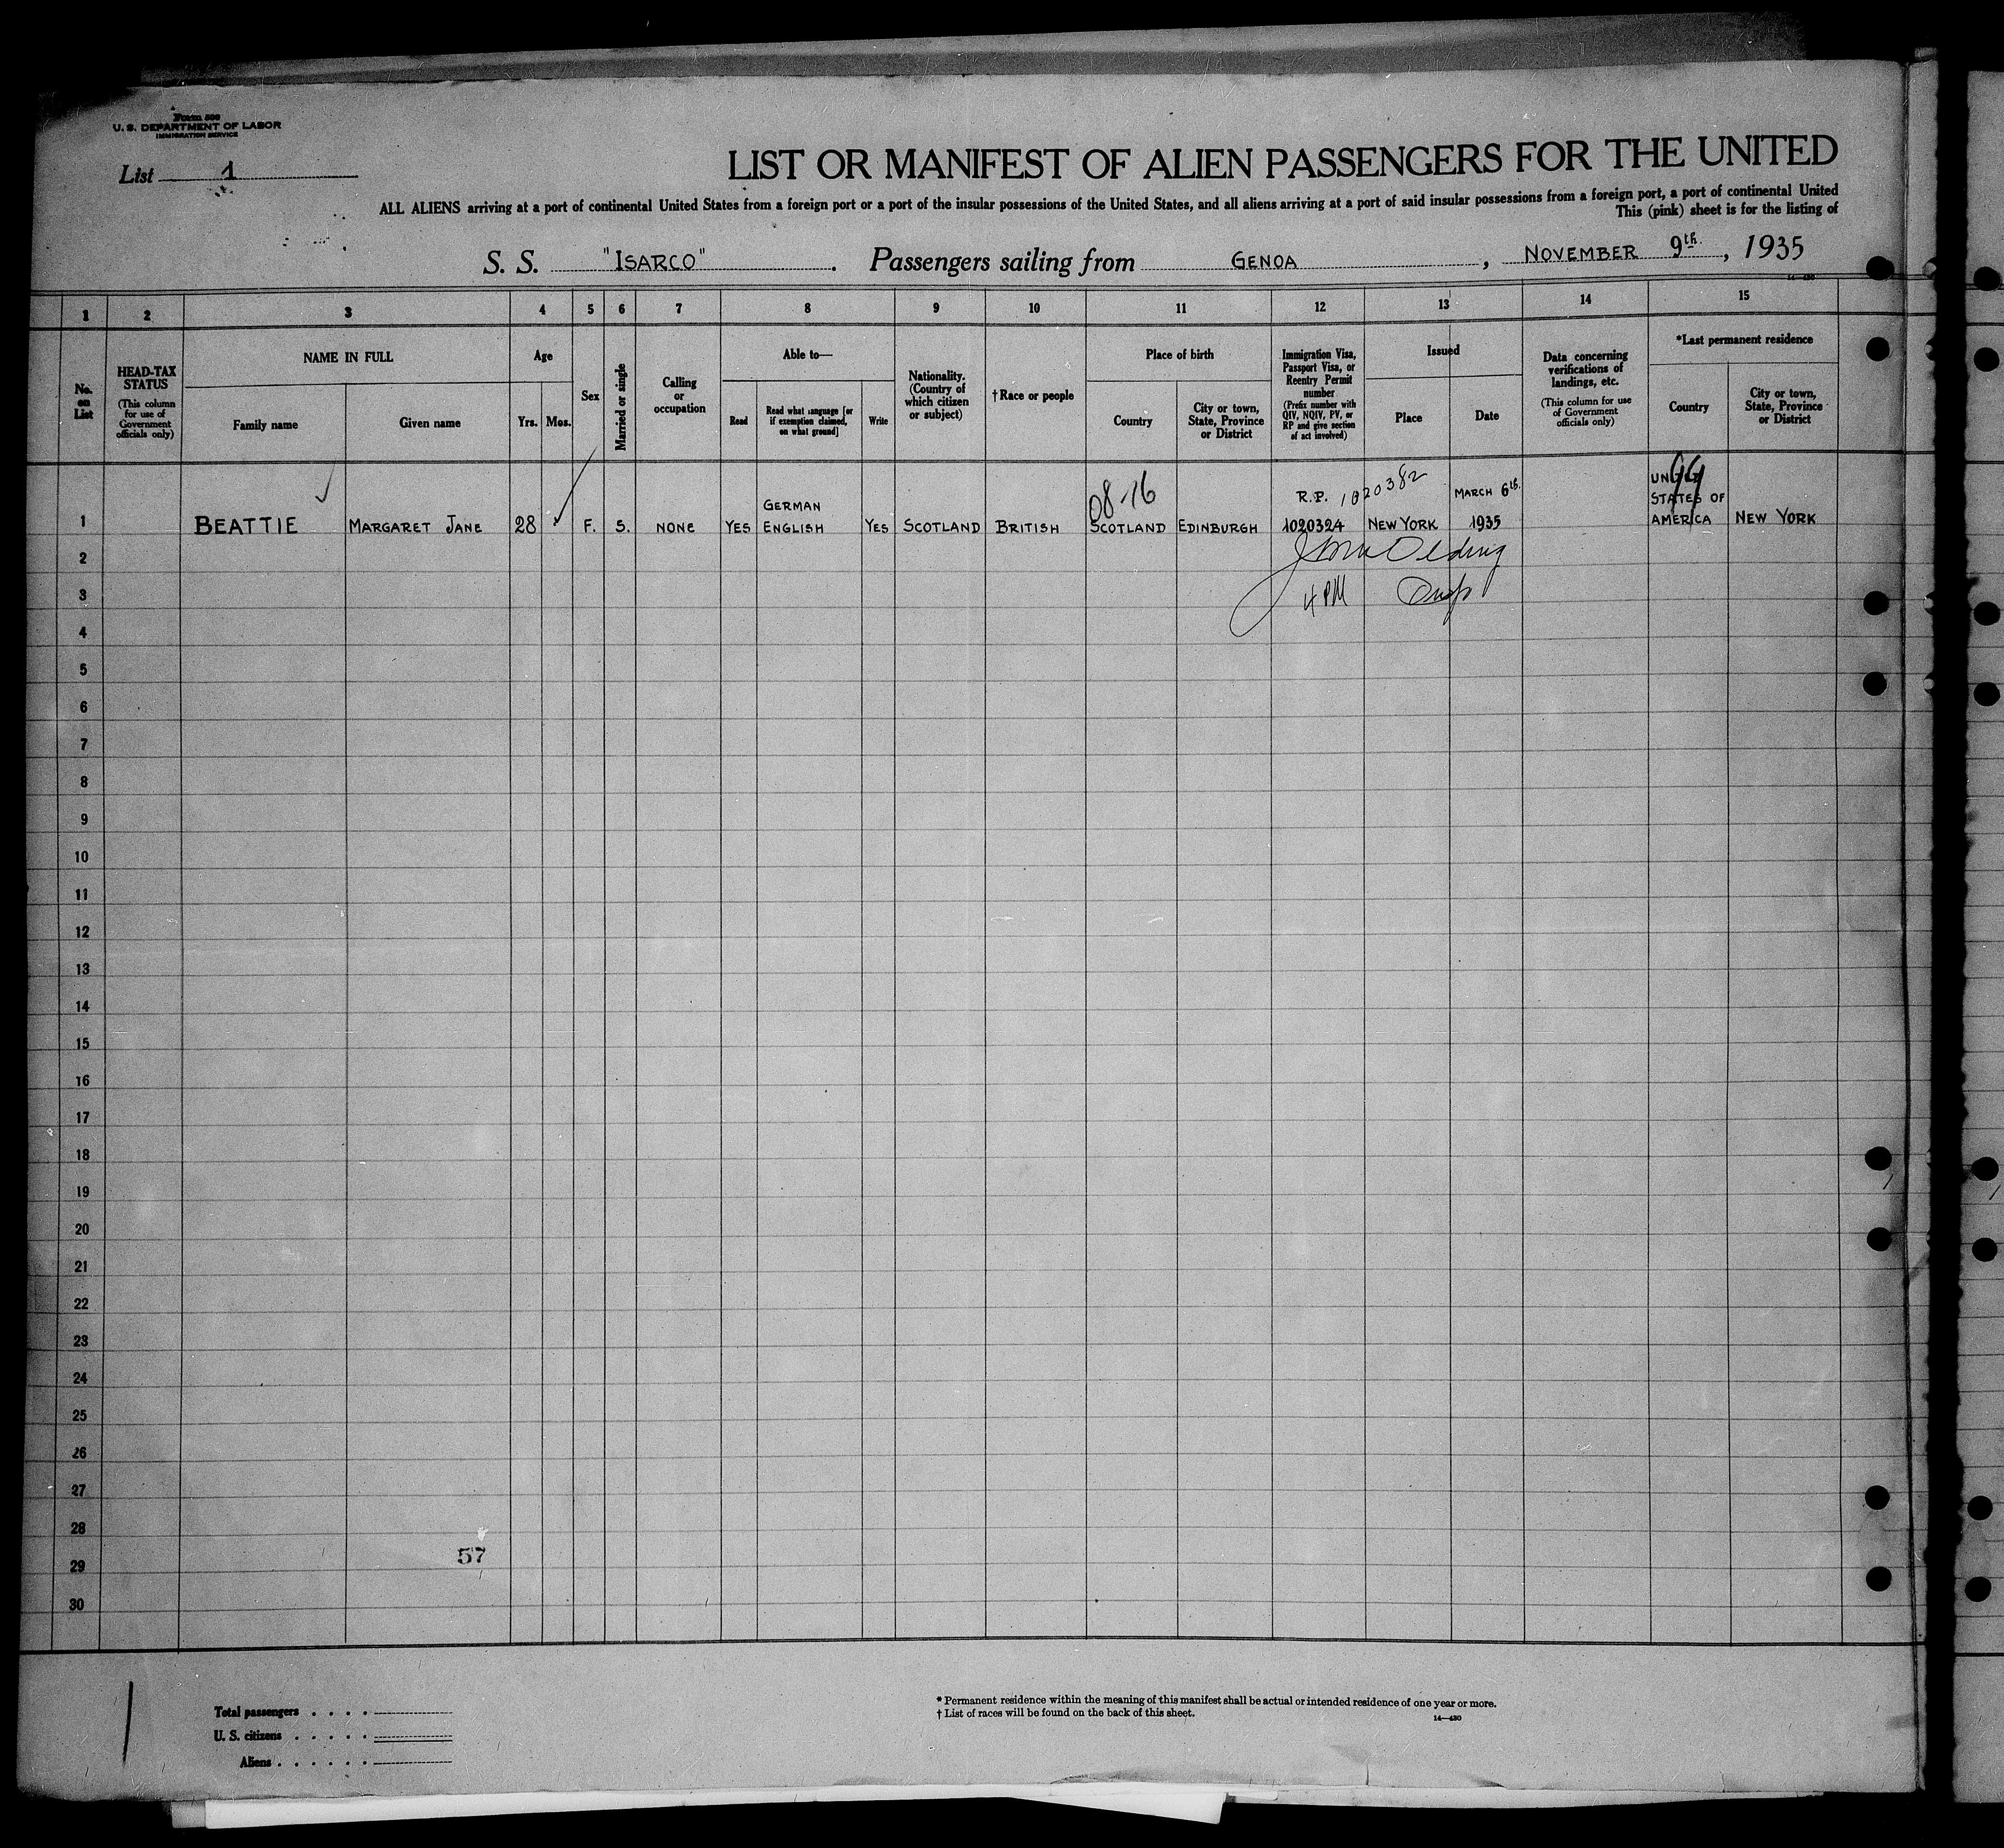 Form 500
U. S. DEPARTMENT OF LABOR
IMMIGRATION SERVICE
List 1
LIST OR MANIFEST OF ALIEN PASSENGERS FOR THE UNITED
ALL ALIENS arriving at a port of continental United States from a foreign port or a port of the insular possessions of the United States, and all aliens arriving at a port of said insular possessions from a foreign port, a port of continental United
This (pink) sheet is for the listing of
S. S. "ISARCO". Passengers sailing from GENOA, NOVEMBER 9th., 1935
1 2 3 4 5 6 7 8 9 10 11 12 13 14 15
No. on List
HEAD-TAX STATUS
(This column for use of Government officials only)
NAME IN FULL
Family name
Given name
Age
Yrs.
Mos.
Sex
Married or single
Calling or occupation
Able to—
Read
Read what language [or if exemption claimed, on what ground]
Write
Nationality. (Country of which citizen or subject)
†Race or people
Place of birth
Country
City or town, State, Province or District
Immigration Visa, Passport Visa, or Reentry Permit number
(Prefix number with QIV, NQIV, PV, or RP and give section of act involved)
Issued
Place
Date
Data concerning verifications of landings, etc.
(This column for use of Government officials only)
*Last permanent residence
Country
City or town, State, Province or District
08-16
R.P. 1020382
1 BEATTIE MARGARET JANE 28 F. S. NONE YES GERMAN ENGLISH YES SCOTLAND BRITISH SCOTLAND EDINBURGH 1020324 NEW YORK MARCH 6th. 1935 STATES OF AMERICA NEW YORK
2
3
4 PM
4
5
6
7
8
9
10
11
12
13
14
15
16
17
18
19
20
21
22
23
24
25
26
27
28
57
29
30
Total passengers . . . .
U. S. citizens . . . . .
Aliens . . . . . .
* Permanent residence within the meaning of this manifest shall be actual or intended residence of one year or more.
† List of races will be found on the back of this sheet.
14—430